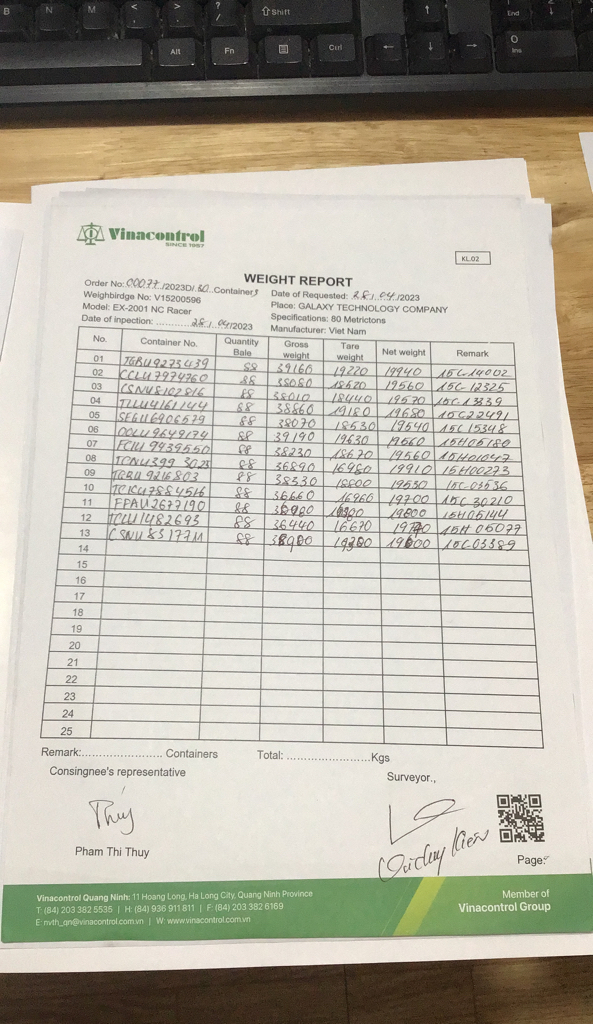 B N M < , > . ? / ⇧ Shift ↑ 1 End
Alt Fn Ctrl ← ↓ → 0 Ins
Vinacontrol
SINCE 1957
KL.02
WEIGHT REPORT
Order No: 00077./2023D/.80..Containers Date of Requested: 28./.04./2023
Weighbirdge No: V15200596 Place: GALAXY TECHNOLOGY COMPANY
Model: EX-2001 NC Racer Specifications: 80 Metrictons
Date of inpection: ............28./.04/2023 Manufacturer: Viet Nam
No. Container No. Quantity Bale Gross weight Tare weight Net weight Remark
01 TGBU9273439 88 39160 19220 19940 15C14002
02 CCLU7974760 88 38080 18520 19560 15C12325
03 CSNU8102816 88 38010 18440 19570 15C13839
04 TLLU4161144 88 38860 19180 19680 15C22491
05 SEGU6906579 88 38070 18530 19540 15C15348
06 OOLU9649174 88 39190 19630 19560 15H05180
07 FCIU9439550 88 38230 18670 19560 15H01047
08 TCNU399 3023 88 36890 16980 19910 15H00273
09 TGBU9216803 88 38330 18800 19530 15C03536
10 88 36660 16960 19700 15C30210
11 FFAU2677190 88 19800 15H05144
12 TCLU1482693 88 36440 16670 15H 05077
13 88 15C03389
14
15
16
17
18
19
20
21
22
23
24
25
Remark:........................ Containers Total: .........................Kgs
Consingnee's representative Surveyor.,
Thuý
Pham Thi Thuy
Page:
Vinacontrol Quang Ninh: 11 Hoang Long, Ha Long City, Quang Ninh Province
T: (84) 203 382 5535 | H: (84) 936 911 811 | F: (84) 203 382 6169
E: nvth_qn@vinacontrol.com.vn | W: www.vinacontrol.com.vn
Member of
Vinacontrol Group